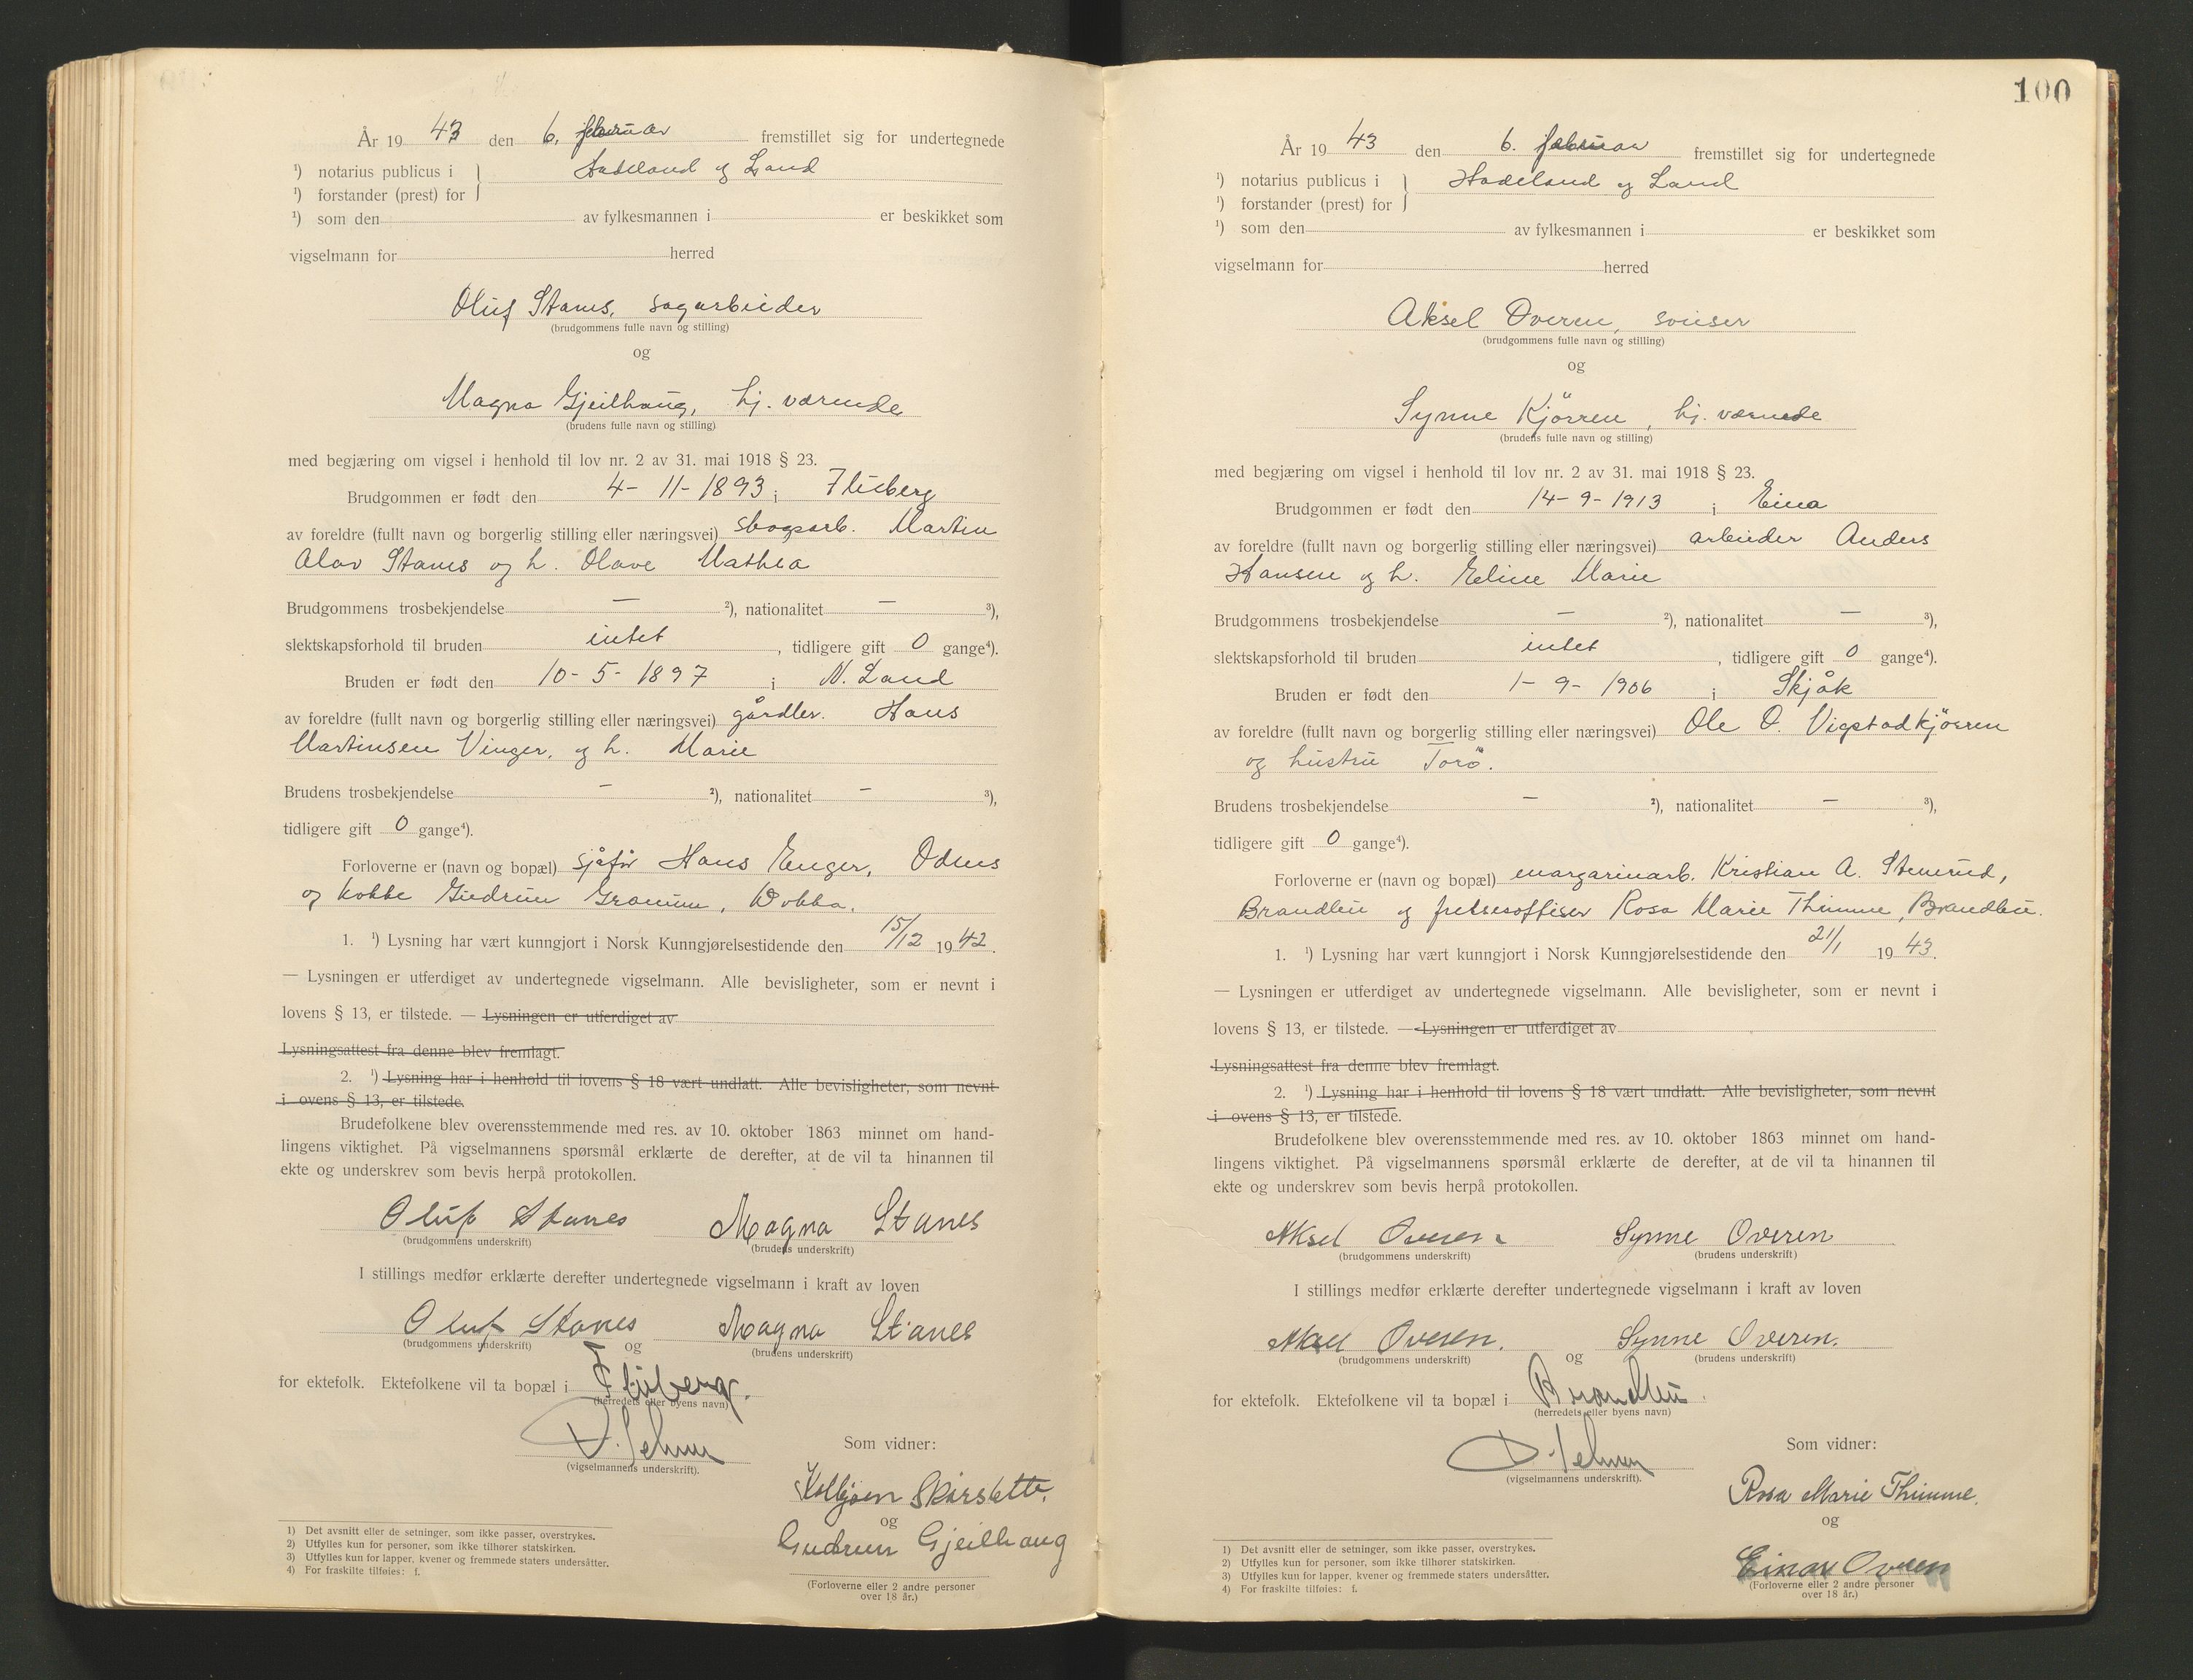 År 19 43 den 6. februar fremstillet sig for undertegnede
¹) notarius publicus i } Hadeland og Land
¹) forstander (prest) for
¹) som den av fylkesmannen i er beskikket som
vigselmann for herred
Oluf Stanes, sagarbeider
(brudgommens fulle navn og stilling)
og
Magna Gjeilhaug, hj. værende
(brudens fulle navn og stilling)
med begjæring om vigsel i henhold til lov nr. 2 av 31. mai 1918 § 23.
Brudgommen er født den 4-11-1893 i Fluberg
av foreldre (fullt navn og borgerlig stilling eller næringsvei) skogsarb. Martin
Alov Stanes og h. Olave Mathea
Brudgommens trosbekjendelse — ²), nationalitet — ³),
slektskapsforhold til bruden intet, tidligere gift 0 gange⁴).
Bruden er født den 10-5-1897 i N. Land
av foreldre (fullt navn og borgerlig stilling eller næringsvei) gårdbr. Hans
Martinsen Vinger, og h. Marie
Brudens trosbekjendelse — ²), nationalitet — ³),
tidligere gift 0 gange⁴).
Forloverne er (navn og bopæl) sjåfør Hans Enger, Odnes
og kokke Gudrun Granum,
1. ¹) Lysning har vært kunngjort i Norsk Kunngjørelsestidende den 15/12 1942.
— Lysningen er utferdiget av undertegnede vigselmann. Alle bevisligheter, som er nevnt i
lovens § 13, er tilstede. — Lysningen er utferdiget av
Lysningsattest fra denne blev fremlagt.
2. ¹) Lysning har i henhold til lovens § 18 vært undlatt. Alle bevisligheter, som nevnt
i ovens § 13, er tilstede.
Brudefolkene blev overensstemmende med res. av 10. oktober 1863 minnet om hand-
lingens viktighet. På vigselmannens spørsmål erklærte de derefter, at de vil ta hinannen til
ekte og underskrev som bevis herpå protokollen.
Oluf Stanes Magna Stanes
(brudgommens underskrift) (brudens underskrift)
I stillings medfør erklærte derefter undertegnede vigselmann i kraft av loven
Oluf Stanes og Magna Stanes
(brudgommens underskrift) (brudens underskrift)
for ektefolk. Ektefolkene vil ta bopæl i Fluberg.
(herredets eller byens navn)
(vigselmannens underskrift).
Som vidner:
Kolbjørn
og
Gudrun Gjeilhaug
(Forloverne eller 2 andre personer
over 18 år.)
1) Det avsnitt eller de setninger, som ikke passer, overstrykes.
2) Utfylles kun for personer, som ikke tilhører statskirken.
3) Utfylles kun for lapper, kvener og fremmede staters undersåtter.
4) For fraskilte tilføies: f.
100
År 19 43 den 6. februar fremstillet sig for undertegnede
¹) notarius publicus i } Hadeland og Land
¹) forstander (prest) for
¹) som den av fylkesmannen i er beskikket som
vigselmann for herred
Aksel Overen, sveiser
(brudgommens fulle navn og stilling)
og
Synne Kjörren, hj. værende
(brudens fulle navn og stilling)
med begjæring om vigsel i henhold til lov nr. 2 av 31. mai 1918 § 23.
Brudgommen er født den 14-9-1913 i Eina
av foreldre (fullt navn og borgerlig stilling eller næringsvei) arbeider Anders
Hansen og h. Eline Marie
Brudgommens trosbekjendelse — ²), nationalitet — ³),
slektskapsforhold til bruden intet, tidligere gift 0 gange⁴).
Bruden er født den 1-9-1906 i Skjåk
av foreldre (fullt navn og borgerlig stilling eller næringsvei) Ole O. Vigstadkjörren
og hustru Torö.
Brudens trosbekjendelse — ²), nationalitet — ³),
tidligere gift 0 gange⁴).
Forloverne er (navn og bopæl) margarinarb. Kristian A. Stenerud,
Brandbu og frelsesoffiser Rosa Marie Thimme, Brandbu.
1. ¹) Lysning har vært kunngjort i Norsk Kunngjørelsestidende den 21/1 1943.
— Lysningen er utferdiget av undertegnede vigselmann. Alle bevisligheter, som er nevnt i
lovens § 13, er tilstede. — Lysningen er utferdiget av
Lysningsattest fra denne blev fremlagt.
2. ¹) Lysning har i henhold til lovens § 18 vært undlatt. Alle bevisligheter, som nevnt
i ovens § 13, er tilstede.
Brudefolkene blev overensstemmende med res. av 10. oktober 1863 minnet om hand-
lingens viktighet. På vigselmannens spørsmål erklærte de derefter, at de vil ta hinannen til
ekte og underskrev som bevis herpå protokollen.
Aksel Overen Synne Overen
(brudgommens underskrift) (brudens underskrift)
I stillings medfør erklærte derefter undertegnede vigselmann i kraft av loven
Aksel Overen. og Synne Overen.
(brudgommens underskrift) (brudens underskrift)
for ektefolk. Ektefolkene vil ta bopæl i Brandbu.
(herredets eller byens navn)
(vigselmannens underskrift).
Som vidner:
Rosa Marie Thimme.
og
Einar Overen
(Forloverne eller 2 andre personer
over 18 år.)
1) Det avsnitt eller de setninger, som ikke passer, overstrykes.
2) Utfylles kun for personer, som ikke tilhører statskirken.
3) Utfylles kun for lapper, kvener og fremmede staters undersåtter.
4) For fraskilte tilføies: f.